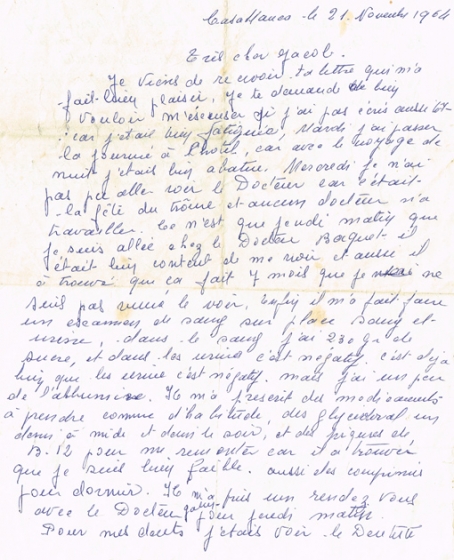 Casablanca le 21 Novembre 1964
Trés cher Jacob.
Je viens de recevoir ta lettre qui m'a
fait bien plaisir, je te demande de bien
vouloir m'escuser si j'ai pas écris aussi tôt
car j'etait bien fatiguée, Mardi j'ai passer
la journée à l'hotel, car avec le voyage de
nuit j'etait bien abatue. Mercredi je n'ai
pas pu aller voir le Docteur car c'était
la fêté du trône et aucun docteur n'a
travailler. Ce n'est que jeudi matin que
je suis allée chez le Docteur il
était bien content de me voir et aussi il
à trouvé que ça fait 7 mois que je ne
suis pas venue le voir. Enfin il m'a fait faire
un escamen de sang sur place sang et
urine, dans le sang j'ai 230 gr de
sucre, et dans les urine c'est négatif. c'est déjà
bien que les urine c'est négatif. mais j'ai un peu
de l'albumine. Il m'a prescrit des medicaments
à prendre comme d'habitude, des un
demis à midi et demis le soir, et des piqures de
B.12 pour me remonter car il a trouver
que je suis bien faible. aussi des comprimis
pour dormir. Il m'a pris un rendez vous
avec le Docteur pour jeudi matin.
Pour mes dents j'etais voir le Dentiste